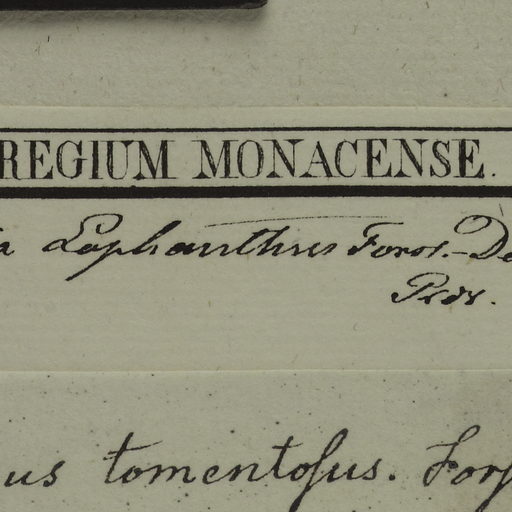 REGIUM MONACENSE.
a Lophanthus Forst. - De
Prdr.
us tomentoſus. Forſ